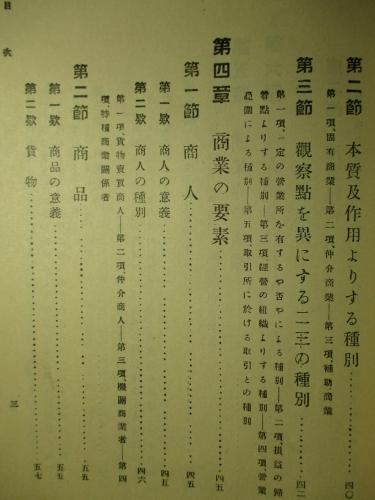 第二節 本質及作用よりする種別……四〇
第一項、固有商業―第二項、仲介商業―第三項、補助商業
第三節 觀察點を異にする二三の種別……四二
第一項、一定の營業所を有するや否やによる種別―第二項、損益の歸
着點よりする種別―第三項、經營の組織よりする種別―第四項、營業
範圍による種別―第五項取引所に於ける取引との種別
第四章 商業の要素……四五
第一節 商人……四五
第一款 商人の意義……四五
第二款 商人の種別……四六
第一項、貨物賣買商人―第二項、仲介商人―第三項、機關商業者―第四
項、特種商業關係者
第二節 商品……五五
第一款 商品の意義……五五
第二款 貨物……五七
目次
三